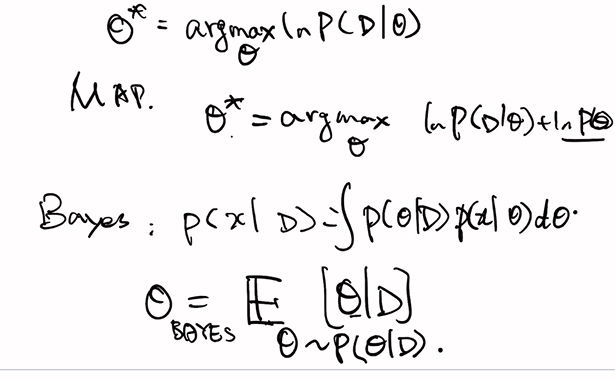 θ* = argmax_θ ln P(D|θ)
MAP. θ* = argmax_θ ln P(D|θ) + ln P(θ
Bayes: p(x|D) = ∫ p(θ|D) p(x|θ) dθ.
θ_BAYES = E_θ~P(θ|D). [θ|D]